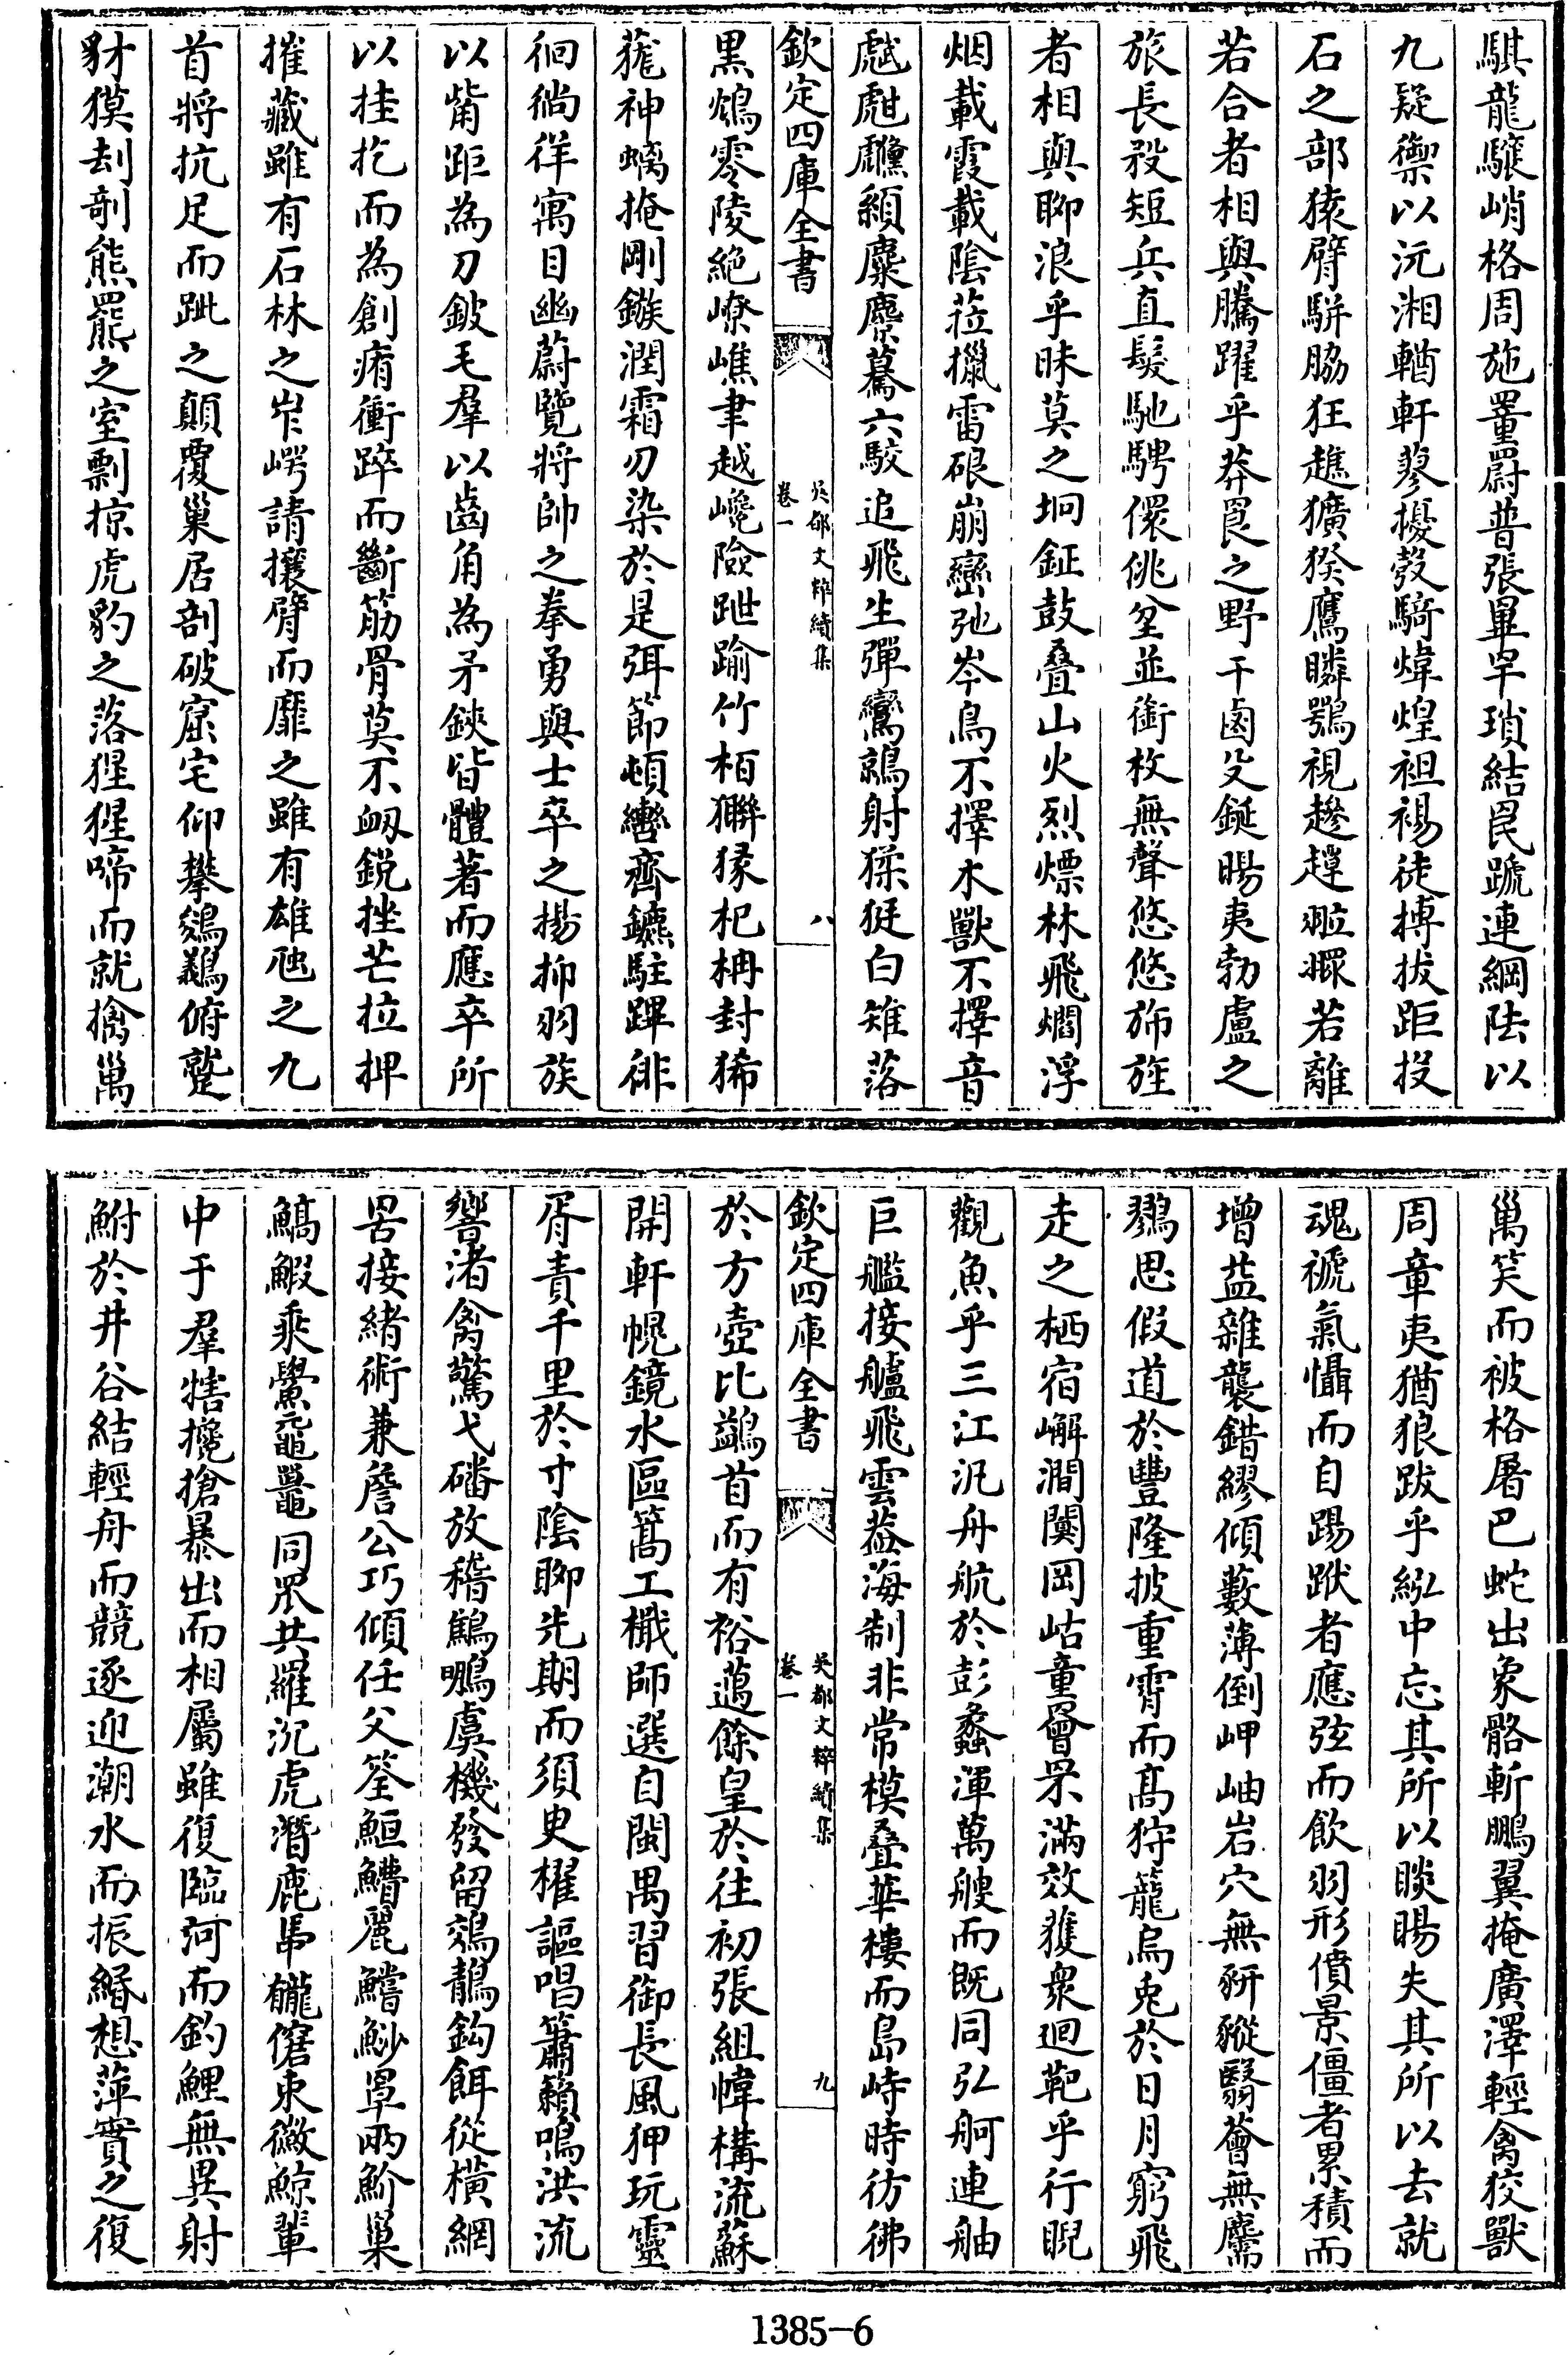 騏龍驤峭格周施罿罻普張畢罕瑣結罠蹏連綱阹以
九疑禦以沅湘輶軒蓼擾彀騎煒煌袒裼徒搏拔距投
石之部猿臂駢脇狂趭獷猤鷹瞵鶚視趁䟃翋䎀若離
若合者相與騰躍乎莽罠之野干鹵殳鋋暘夷勃盧之
旅長殺短兵直髮馳騁儇佻坌並銜枚無聲悠悠斾旌
者相與聊浪乎昧莫之坰鉦鼓疊山火烈熛林飛爓浮
烟載霞載陰菈擸雷硠崩巒弛岑鳥不擇木獸不擇音
虣甝虪䋶麋麖驀六駮追飛生彈鸞鶁射猱狿白雉落
欽定四庫全書
吳都文粹續集
卷一
八
黒鴆零陵絕嶛嶕聿越巉險跇踰竹栢獑猭杞柟封狶
蘢神螭掩剛鏃潤霜刃染於是弭節頓轡齊鑣駐蹕徘
徊徜徉寓目幽蔚覽將帥之拳勇與士卒之揚抑羽族
以觜距為刀鈹毛羣以齒角為矛鋏皆體著而應卒所
以挂扢而為創痏衝踤而斷筋骨莫不衂鋭挫芒拉押
摧藏雖有石林之岝崿請攘臂而靡之雖有雄虺之九
首將抗足而跐之顛覆巢居剖破窟宅仰攀鵕鸃俯蹵
豺獏刦剞熊羆之室剽掠虎豹之落猩猩啼而就擒萬
萬笑而被格屠巴蛇出象骼斬鵬翼掩廣澤輕禽狡獸
周章夷猶狼跋乎紭中忘其所以睒睗失其所以去就
魂褫氣懾而自踢跌者應弦而飲羽形僨景僵者累積而
增益雜襲錯繆傾藪薄倒岬岫岩穴無豜豵翳薈無麛
鷚思假道於豐隆披重霄而髙狩籠烏兎於日月窮飛
走之栖宿嶰澗闃岡岵童罾罘滿效獲衆迴靶乎行睨
觀魚乎三江汎舟航於彭蠡渾萬艘而既同弘舸連舳
巨艦接艫飛雲蓋海制非常模疊華樓而島峙時彷彿
欽定四庫全書
吳都文粹續集
卷一
九
於方壺比鷁首而有裕邁餘皇於往初張組幃構流蘇
開軒幌鏡水區篙工檝師選自閩禺習御長風狎玩靈
胥責千里於寸陰聊先期而須臾櫂謳唱簫籟鳴洪流
響渚禽驚弋磻放稽鷦鵬虞機發留鵁鶄鈎餌從横網
罟接緒術兼詹公巧傾任父筌䱎䲛麗鱨魦罩兩魪巢
鰝鰕乘鱟黿鼉同罛共羅沉虎潛鹿馽䮾僒束徽鯨輩
中于羣犗攙搶暴出而相屬雖復臨河而釣鯉無異射
鮒於井谷結輕舟而競逐迎潮水而振緡想萍實之復
1385-6